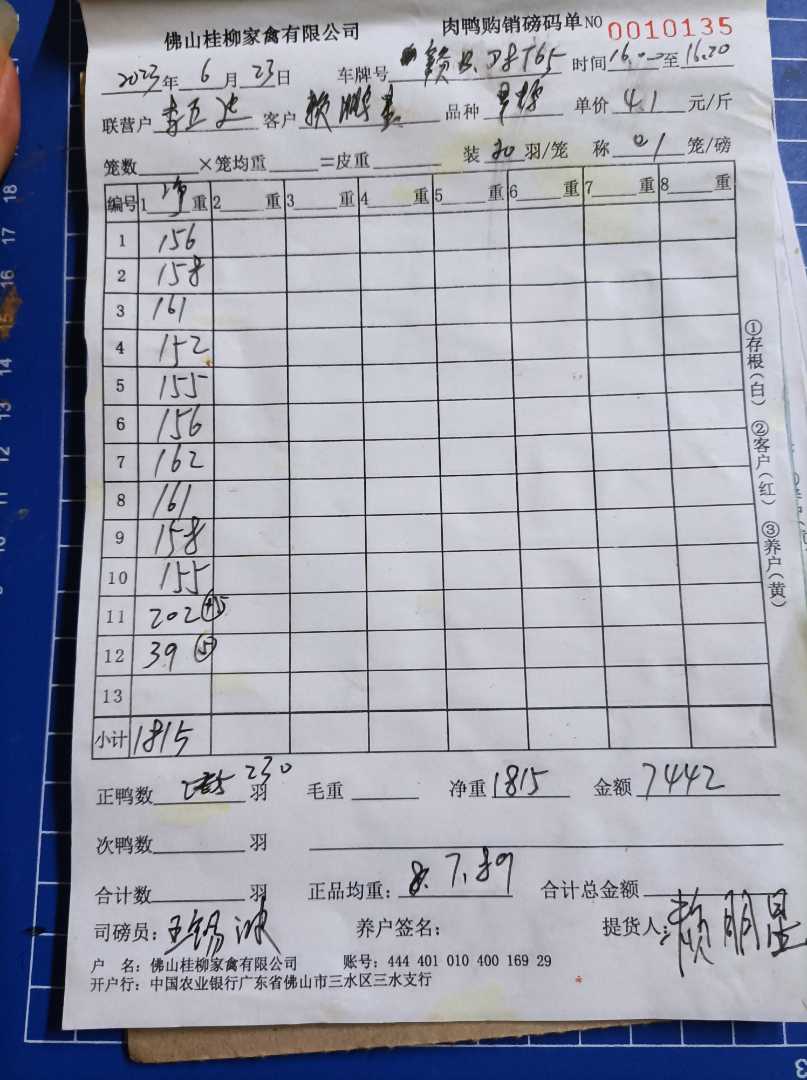 佛山桂柳家禽有限公司 肉鸭购销磅码单 NO 0010135
2023年 6 月 23日 车牌号 时间 16.00 至 16.20
联营户 客户 赖 品种 单价 4.1 元/斤
笼数 ×笼均重 =皮重 装 20 羽/笼 称 01 笼/磅
编号 1 净 重 2 重 3 重 4 重 5 重 6 重 7 重 8 重
1 156
2 158
3 161
4 152
5 155
6 156
7 162
8 161
9 158
10 155
11 202
12 39 ⑤
13
小计 1815
正鸭数 230 羽 毛重 净重 1815 金额 7442
次鸭数 羽
合计数 羽 正品均重: 7.89 合计总金额
司磅员: 王锡 养户签名: 提货人: 赖
户 名: 佛山桂柳家禽有限公司 账号: 444 401 010 400 169 29
开户行: 中国农业银行广东省佛山市三水区三水支行
①存根(白) ②客户(红) ③养户(黄)
18
17
16
15
14
13
12
11
10